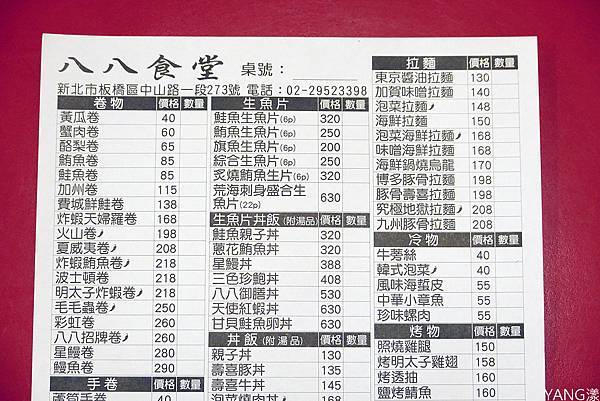 八八食堂 桌號：
新北市板橋區中山路一段273號 電話：02-29523398
卷物 價格 數量
黃瓜卷 40
蟹肉卷 60
酪梨卷 65
鮪魚卷 85
鮭魚卷 85
加州卷 115
費城鮮鮭卷 138
炸蝦天婦羅卷 168
火山卷 198
夏威夷卷 208
炸蝦鮪魚卷 218
波士頓卷 218
明太子炸蝦卷 218
毛毛蟲卷 250
彩虹卷 260
八八招牌卷 260
星鰻卷 280
鰻魚卷 290
手卷 價格 數量
蘆筍手卷 40
生魚片 價格 數量
鮭魚生魚片(6p) 320
鮪魚生魚片(6p) 250
旗魚生魚片(6p) 200
綜合生魚片(6p) 250
炙燒鮪魚生片(6p) 320
荒海刺身盛合生魚片(22p) 630
生魚片丼飯(附湯品) 價格 數量
鮭魚親子丼 320
蔥花鮪魚丼 320
星鰻丼 388
三色珍鮑丼 408
八八御膳丼 530
天使紅蝦丼 630
甘貝鮭魚卵丼 630
丼飯(附湯品) 價格 數量
親子丼 130
壽喜豚丼 135
壽喜牛丼 145
泡菜燒肉丼 168
拉麵 價格 數量
東京醬油拉麵 130
加賀味噌拉麵 140
泡菜拉麵 148
海鮮拉麵 150
泡菜海鮮拉麵 168
味噌海鮮拉麵 168
海鮮鍋燒烏龍 170
博多豚骨拉麵 198
豚骨壽喜拉麵 198
究極地獄拉麵 208
九州豚骨拉麵 208
冷物 價格 數量
牛蒡絲 40
韓式泡菜 40
風味海蜇皮 55
中華小章魚 55
珍味螺肉 55
烤物 價格 數量
照燒雞腿 150
烤明太子雞翅 158
烤透抽 160
鹽烤鯖魚 160
YANG漾